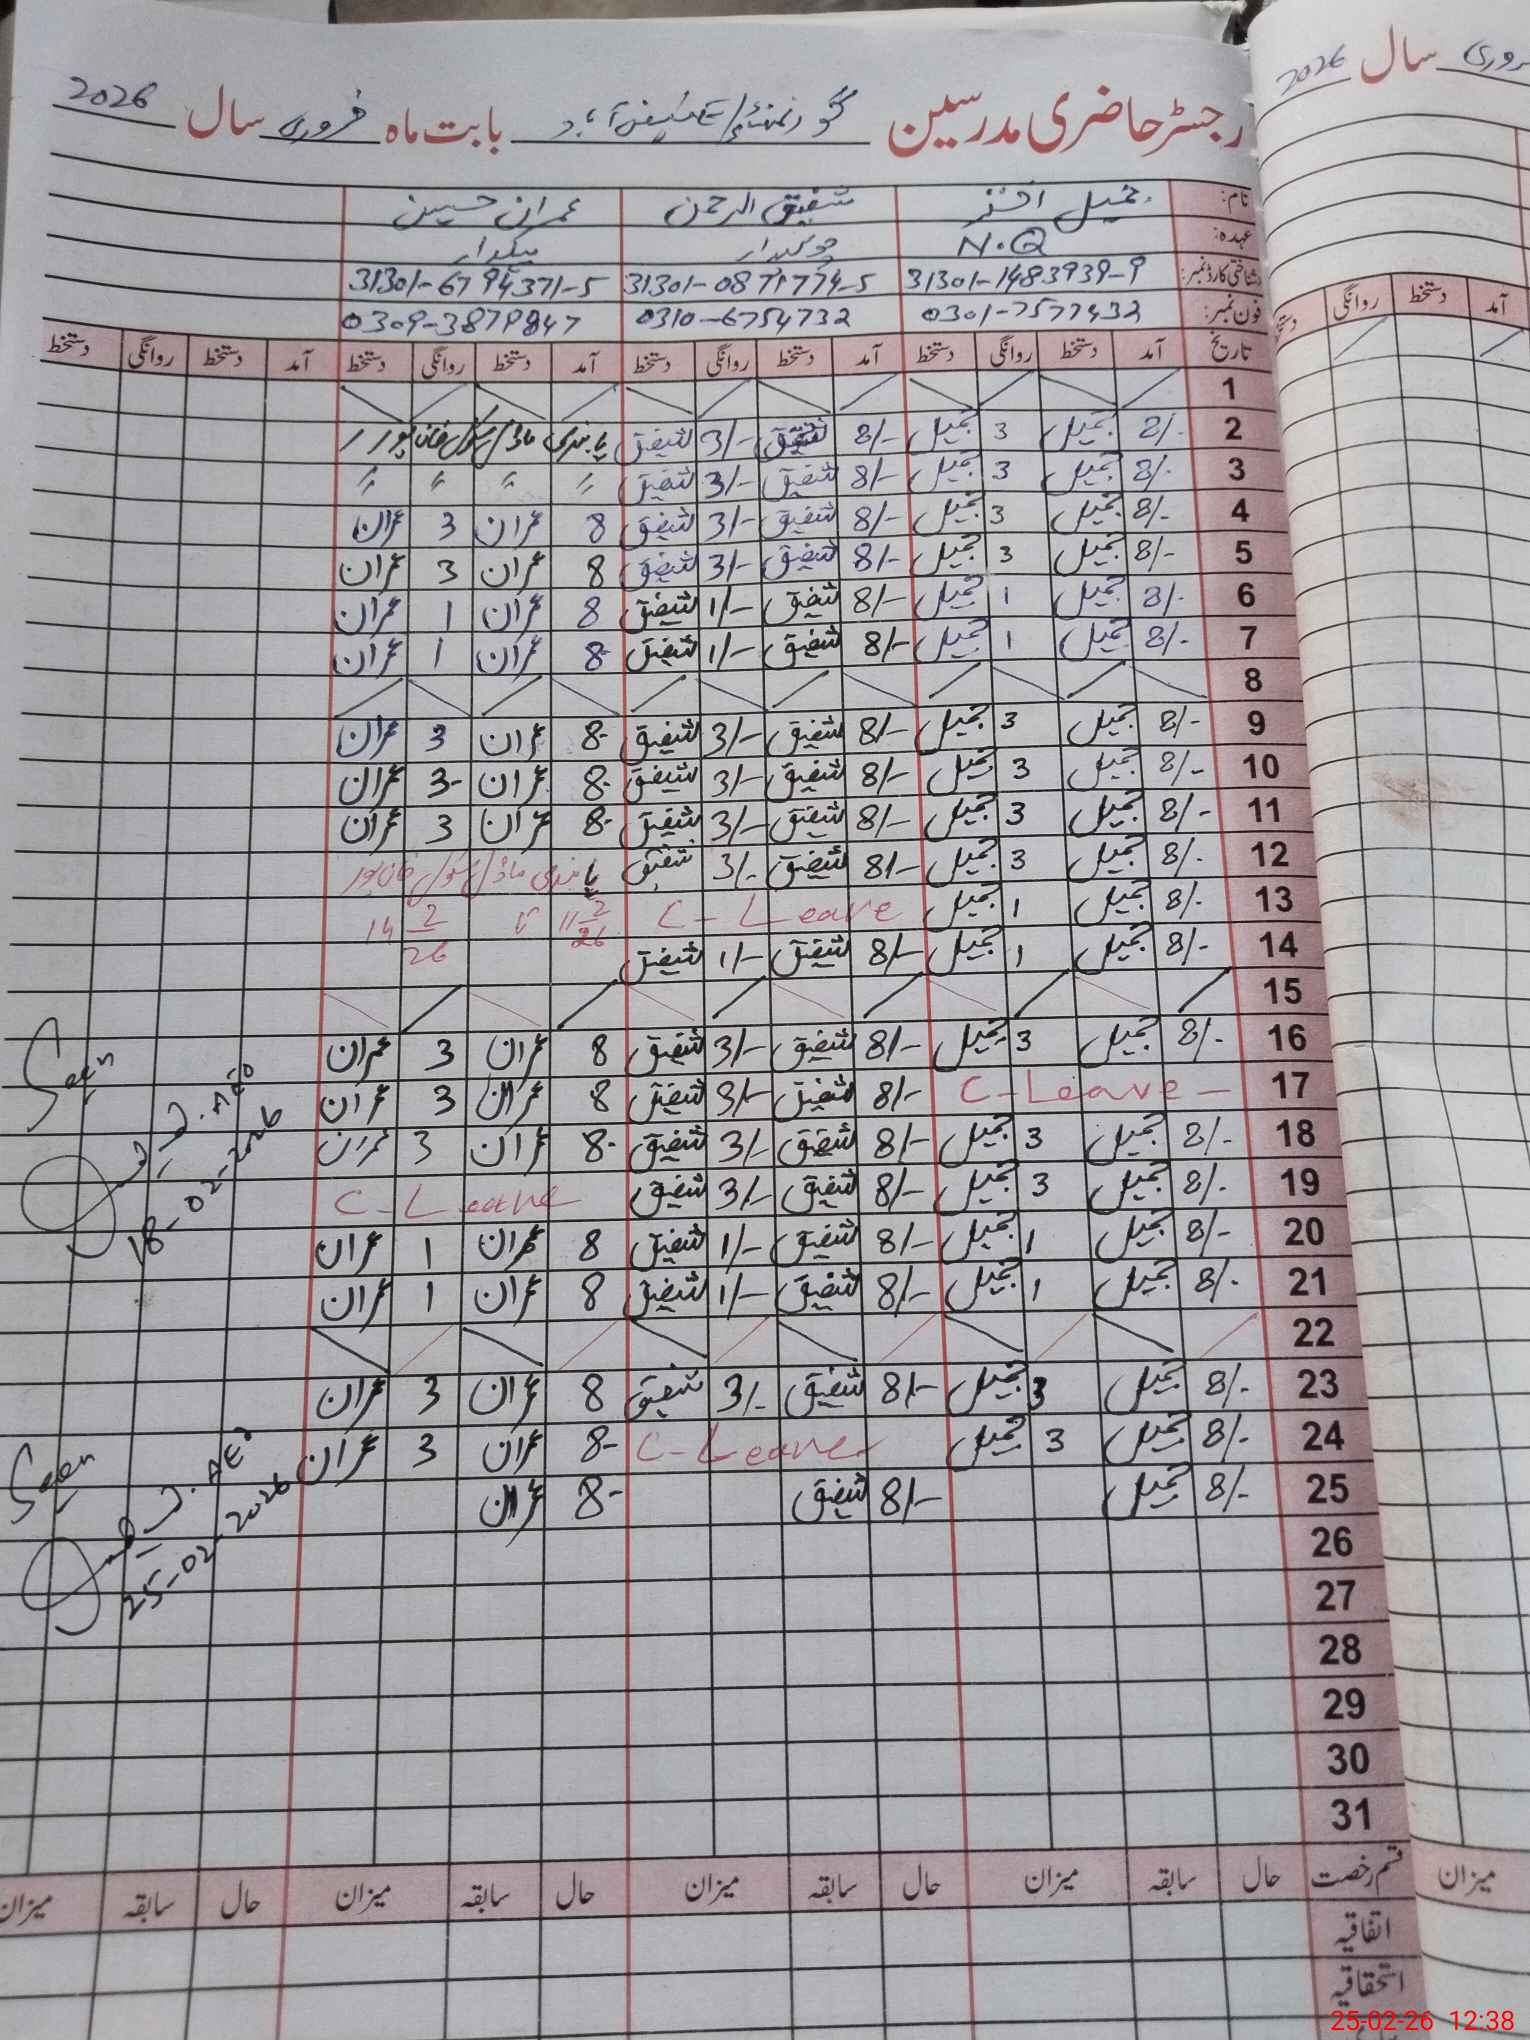 رجسٹر حاضری مدرسین گورنمنٹ بابت ماہ فروری سال 2026
نام: جمیل اختر شفیق الرحمن عمران حسین
عہدہ: N.Q چوکیدار بیلدار
شناختی کارڈ نمبر: 31301-1483939-9 31301-0871774-5 31301-6794371-5
فون نمبر: 0301-7577432 0310-6754732 0309-3879847
تاریخ آمد دستخط روانگی دستخط آمد دستخط روانگی دستخط آمد دستخط روانگی دستخط آمد دستخط روانگی دستخط
1
2 8/- جمیل 3 جمیل 8/- شفیق 3/- شفیق پابندی ماڈل سکول خانپور
3 8/- جمیل 3 جمیل 8/- شفیق 3/- شفیق 〃 〃 〃 〃
4 8/- جمیل 3 جمیل 8/- شفیق 3/- شفیق 8 عمران 3 عمران
5 8/- جمیل 3 جمیل 8/- شفیق 3/- شفیق 8 عمران 3 عمران
6 8/- جمیل 1 جمیل 8/- شفیق 1/- شفیق 8 عمران 1 عمران
7 8/- جمیل 1 جمیل 8/- شفیق 1/- شفیق 8- عمران 1 عمران
8
9 8/- جمیل 3 جمیل 8/- شفیق 3/- شفیق 8- عمران 3 عمران
10 8/- جمیل 3 جمیل 8/- شفیق 3/- شفیق 8- عمران 3- عمران
11 8/- جمیل 3 جمیل 8/- شفیق 3/- شفیق 8- عمران 3 عمران
12 8/- جمیل 3 جمیل 8/- شفیق 3/- شفیق پابندی ماڈل سکول خانپور
13 8/- جمیل 1 جمیل C-Leave 11 2/26 تا 14 2/26
14 8/- جمیل 1 جمیل 8/- شفیق 1/- شفیق
15
16 8/- جمیل 3 جمیل 8/- شفیق 3/- شفیق 8 عمران 3 عمران
17 C-Leave- 8/- شفیق 3/- شفیق 8 عمران 3 عمران
18 8/- جمیل 3 جمیل 8/- شفیق 3/- شفیق 8- عمران 3 عمران
19 8/- جمیل 3 جمیل 8/- شفیق 3/- شفیق C-Leave
20 8/- جمیل 1 جمیل 8/- شفیق 1/- شفیق 8 عمران 1 عمران
21 8/- جمیل 1 جمیل 8/- شفیق 1/- شفیق 8 عمران 1 عمران
22
23 8/- جمیل 3 جمیل 8/- شفیق 3/- شفیق 8 عمران 3 عمران
24 8/- جمیل 3 جمیل C-Leave 8- عمران 3 عمران
25 8/- جمیل 8/- شفیق 8- عمران
26
27
28
29
30
31
Seen
AEO
18-02-2026
Seen
AEO
25-02-2026
قسم رخصت حال سابقہ میزان حال سابقہ میزان حال سابقہ میزان حال سابقہ میزان
اتفاقیہ
استحقاقیہ
سال 2026
آمد دستخط روانگی
میزان
25-02-26 12:38